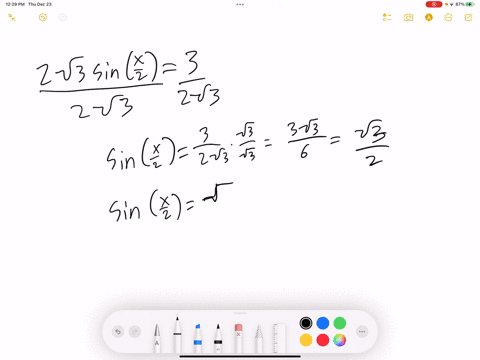 12:29 PM Thu Dec 23
67%
2√3 sin(x/2) / 2√3 = 3 / 2√3
sin(x/2) = 3/2√3 · √3/√3 = 3√3/6 = √3/2
sin(x/2) = √